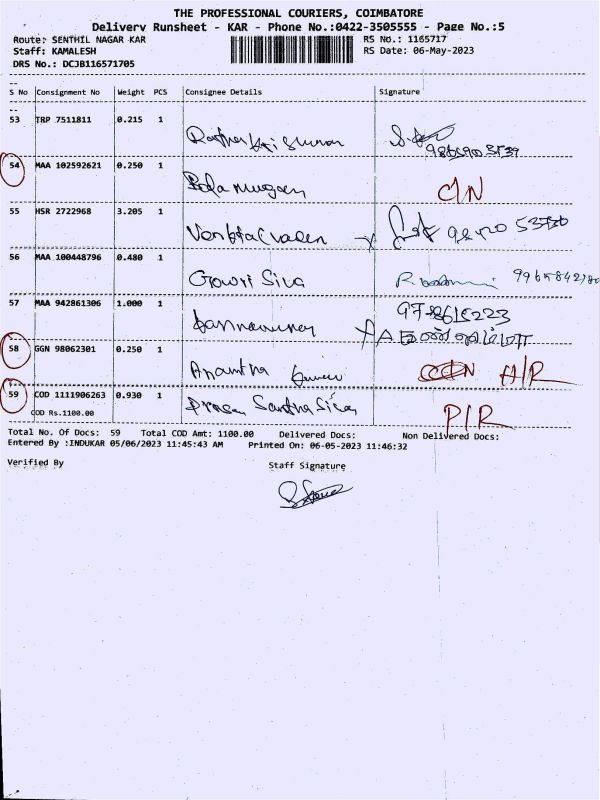 THE PROFESSIONAL COURIERS, COIMBATORE
Delivery Runsheet - KAR - Phone No.:0422-3505555 - Page No.:5
Route: SENTHIL NAGAR KAR RS No.: 1165717
Staff: KAMALESH RS Date: 06-May-2023
DRS No.: DCJB116571705
S No Consignment No Weight PCS Consignee Details Signature
53 TRP 7511811 0.215 1
54 MAA 102592621 0.250 1
Bala murugan C/N
55 HSR 2722968 3.205 1
56 MAA 100448796 0.480 1
Gowri Siva
57 MAA 942861306 1.000 1
58 GGN 98062301 0.250 1
Anantha A/R
59 COD 1111906263 0.930 1
COD Rs.1100.00
P/R
Total No. Of Docs: 59 Total COD Amt: 1100.00 Delivered Docs: Non Delivered Docs:
Entered By :INDUKAR 05/06/2023 11:45:43 AM Printed On: 06-05-2023 11:46:32
Verified By Staff Signature